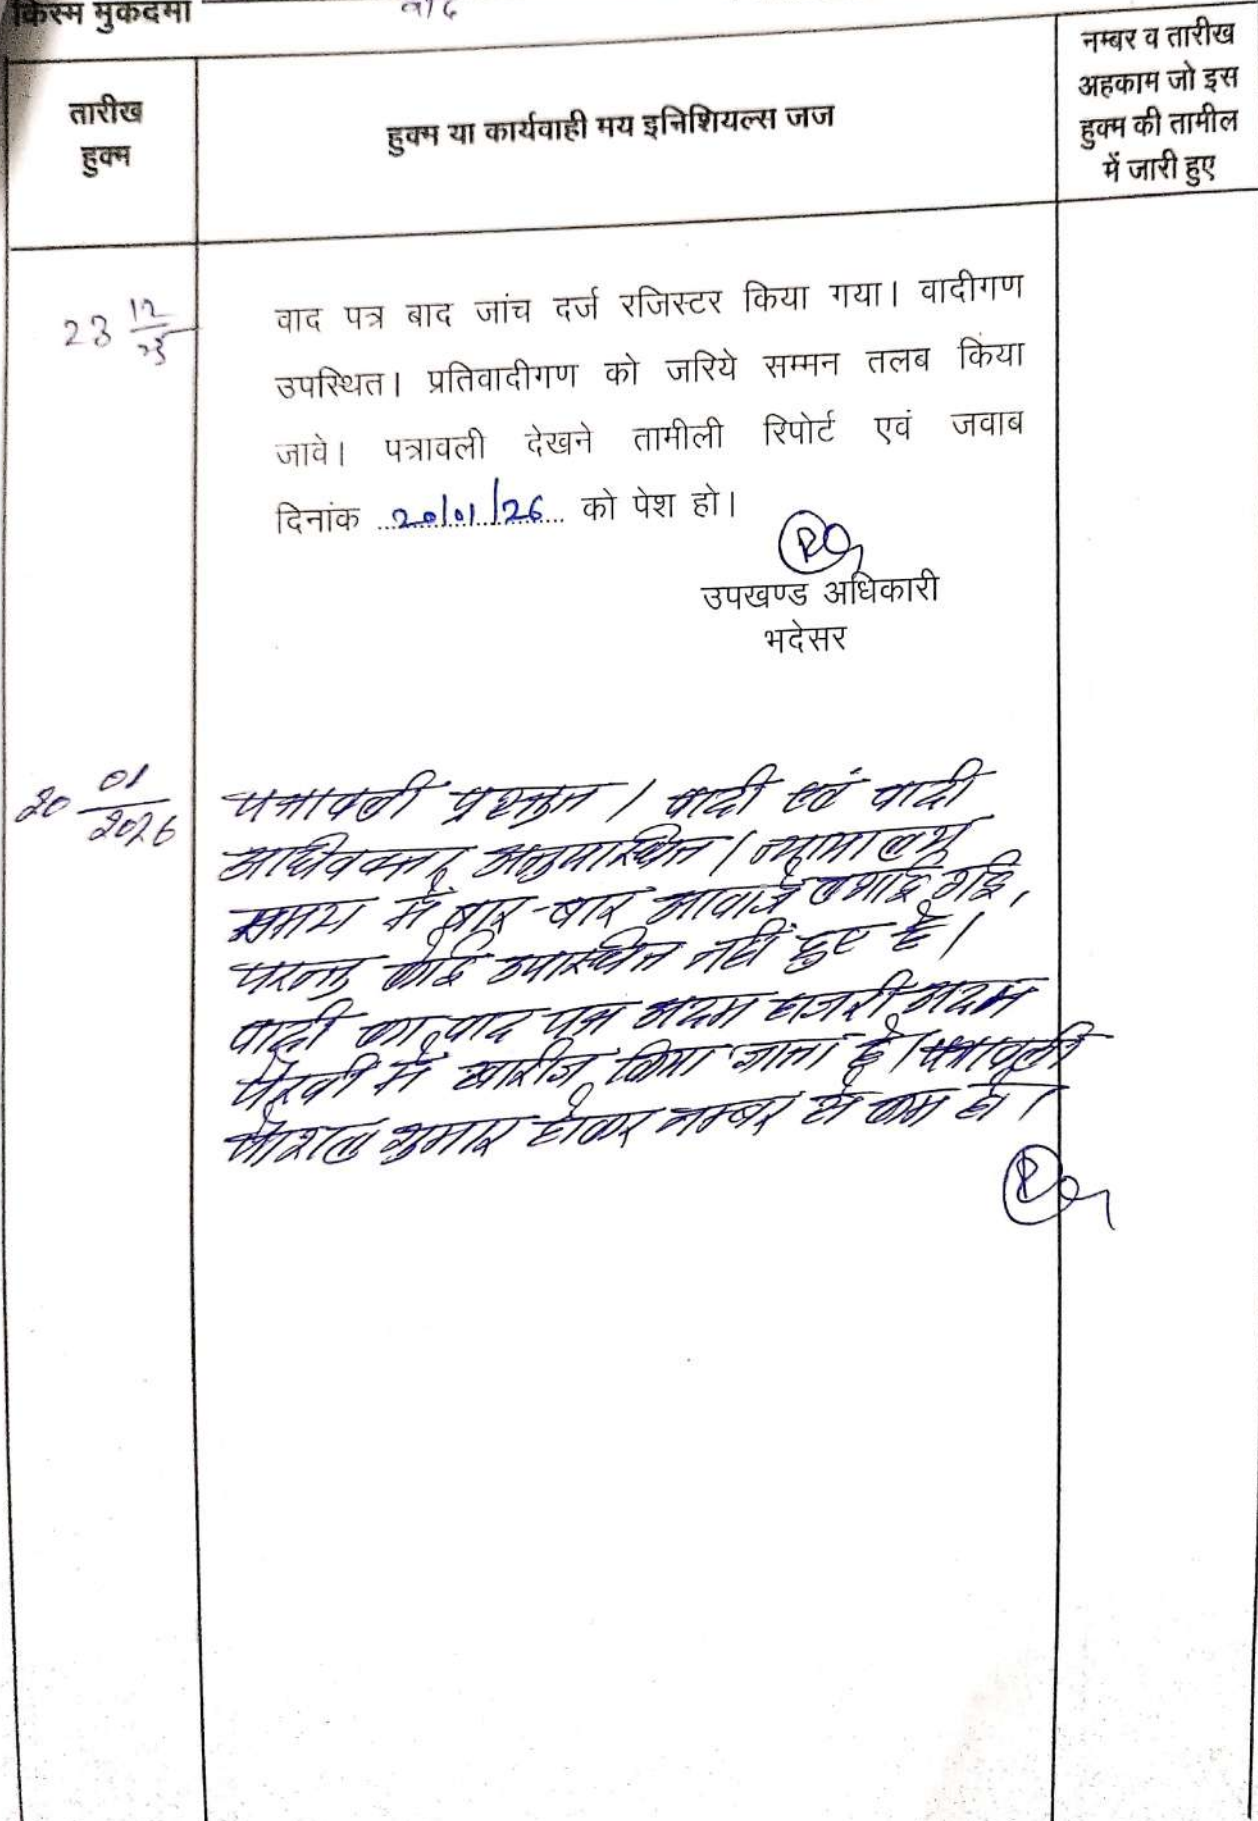 किस्म मुकदमा वाद
तारीख
हुक्म
हुक्म या कार्यवाही मय इनिशियल्स जज
नम्बर व तारीख
अहकाम जो इस
हुक्म की तामील
में जारी हुए
23 12/25
वाद पत्र बाद जांच दर्ज रजिस्टर किया गया। वादीगण
उपस्थित। प्रतिवादीगण को जरिये सम्मन तलब किया
जावे। पत्रावली देखने तामीली रिपोर्ट एवं जवाब
दिनांक 20/01/26 को पेश हो।
उपखण्ड अधिकारी
भदेसर
20 01/2026
पत्रावली प्रस्तुत। वादी एवं वादी
अधिवक्ता अनुपस्थित। न्यायालय
समय में बार-बार आवाजे लगाई गई,
परन्तु कोई उपस्थित नहीं हुए है।
वादी का वाद पत्र अदम हाजरी अदम
पैरवी में खारीज किया जाता है। पत्रावली
फैशल शुमार होकर नम्बर से कम हो।